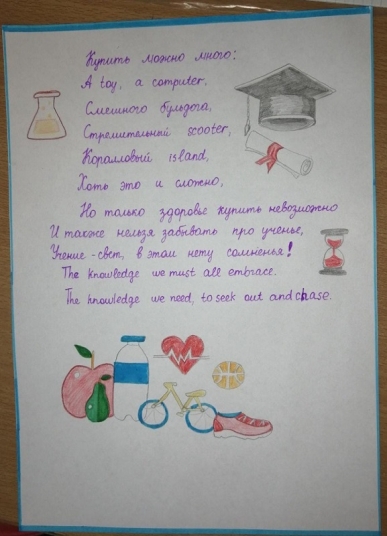 Купить можно много:
A toy, a computer,
Смешного бульдога,
Стремительный scooter,
Коралловый island,
Хоть это и сложно,
Но только здоровье купить невозможно
И также нельзя забывать про ученье,
Учение - свет, в этом нету сомненья!
The knowledge we must all embrace.
The knowledge we need, to seek out and chase.